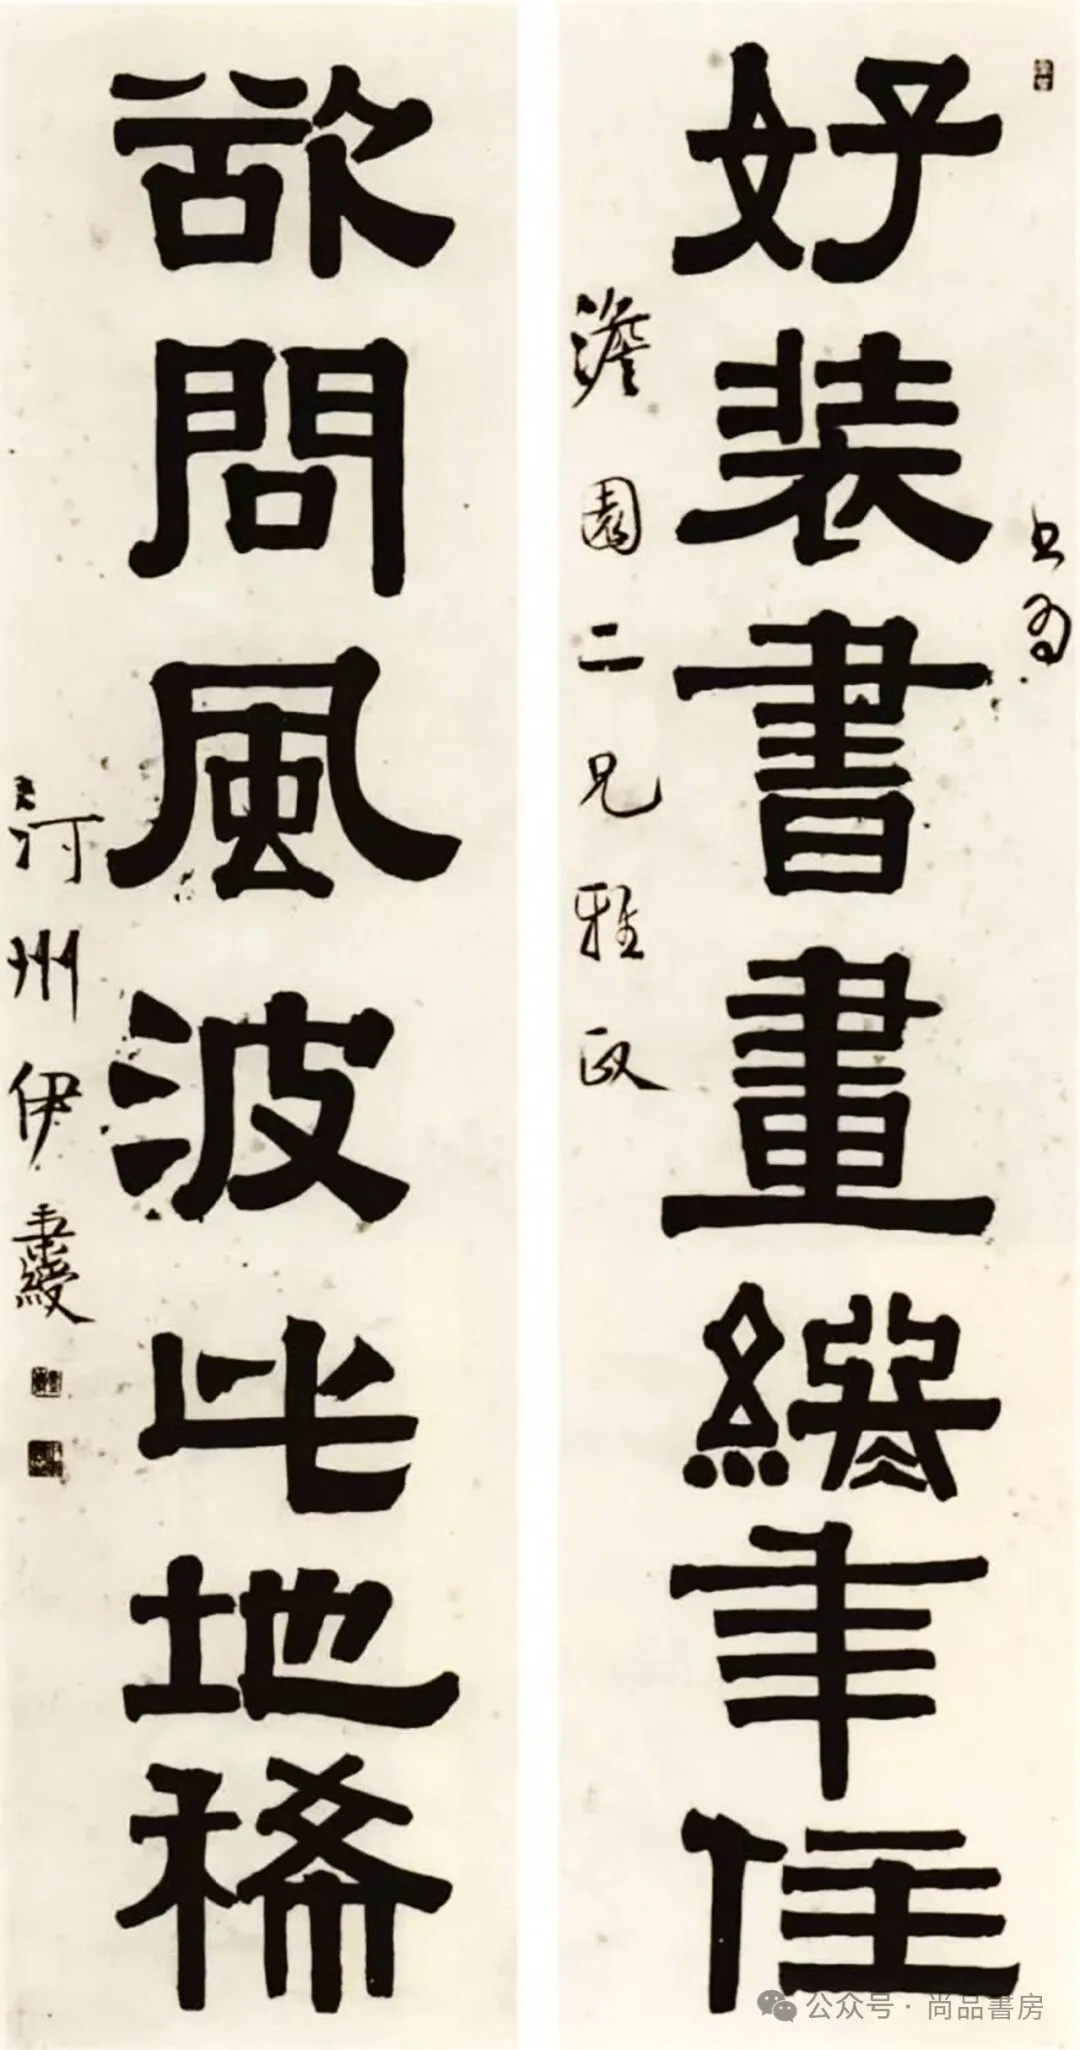 書為
好裝書畫終年住
澹園二兄雅政
欲問風波此地稀
汀州伊秉綬
公众号·尚品書房